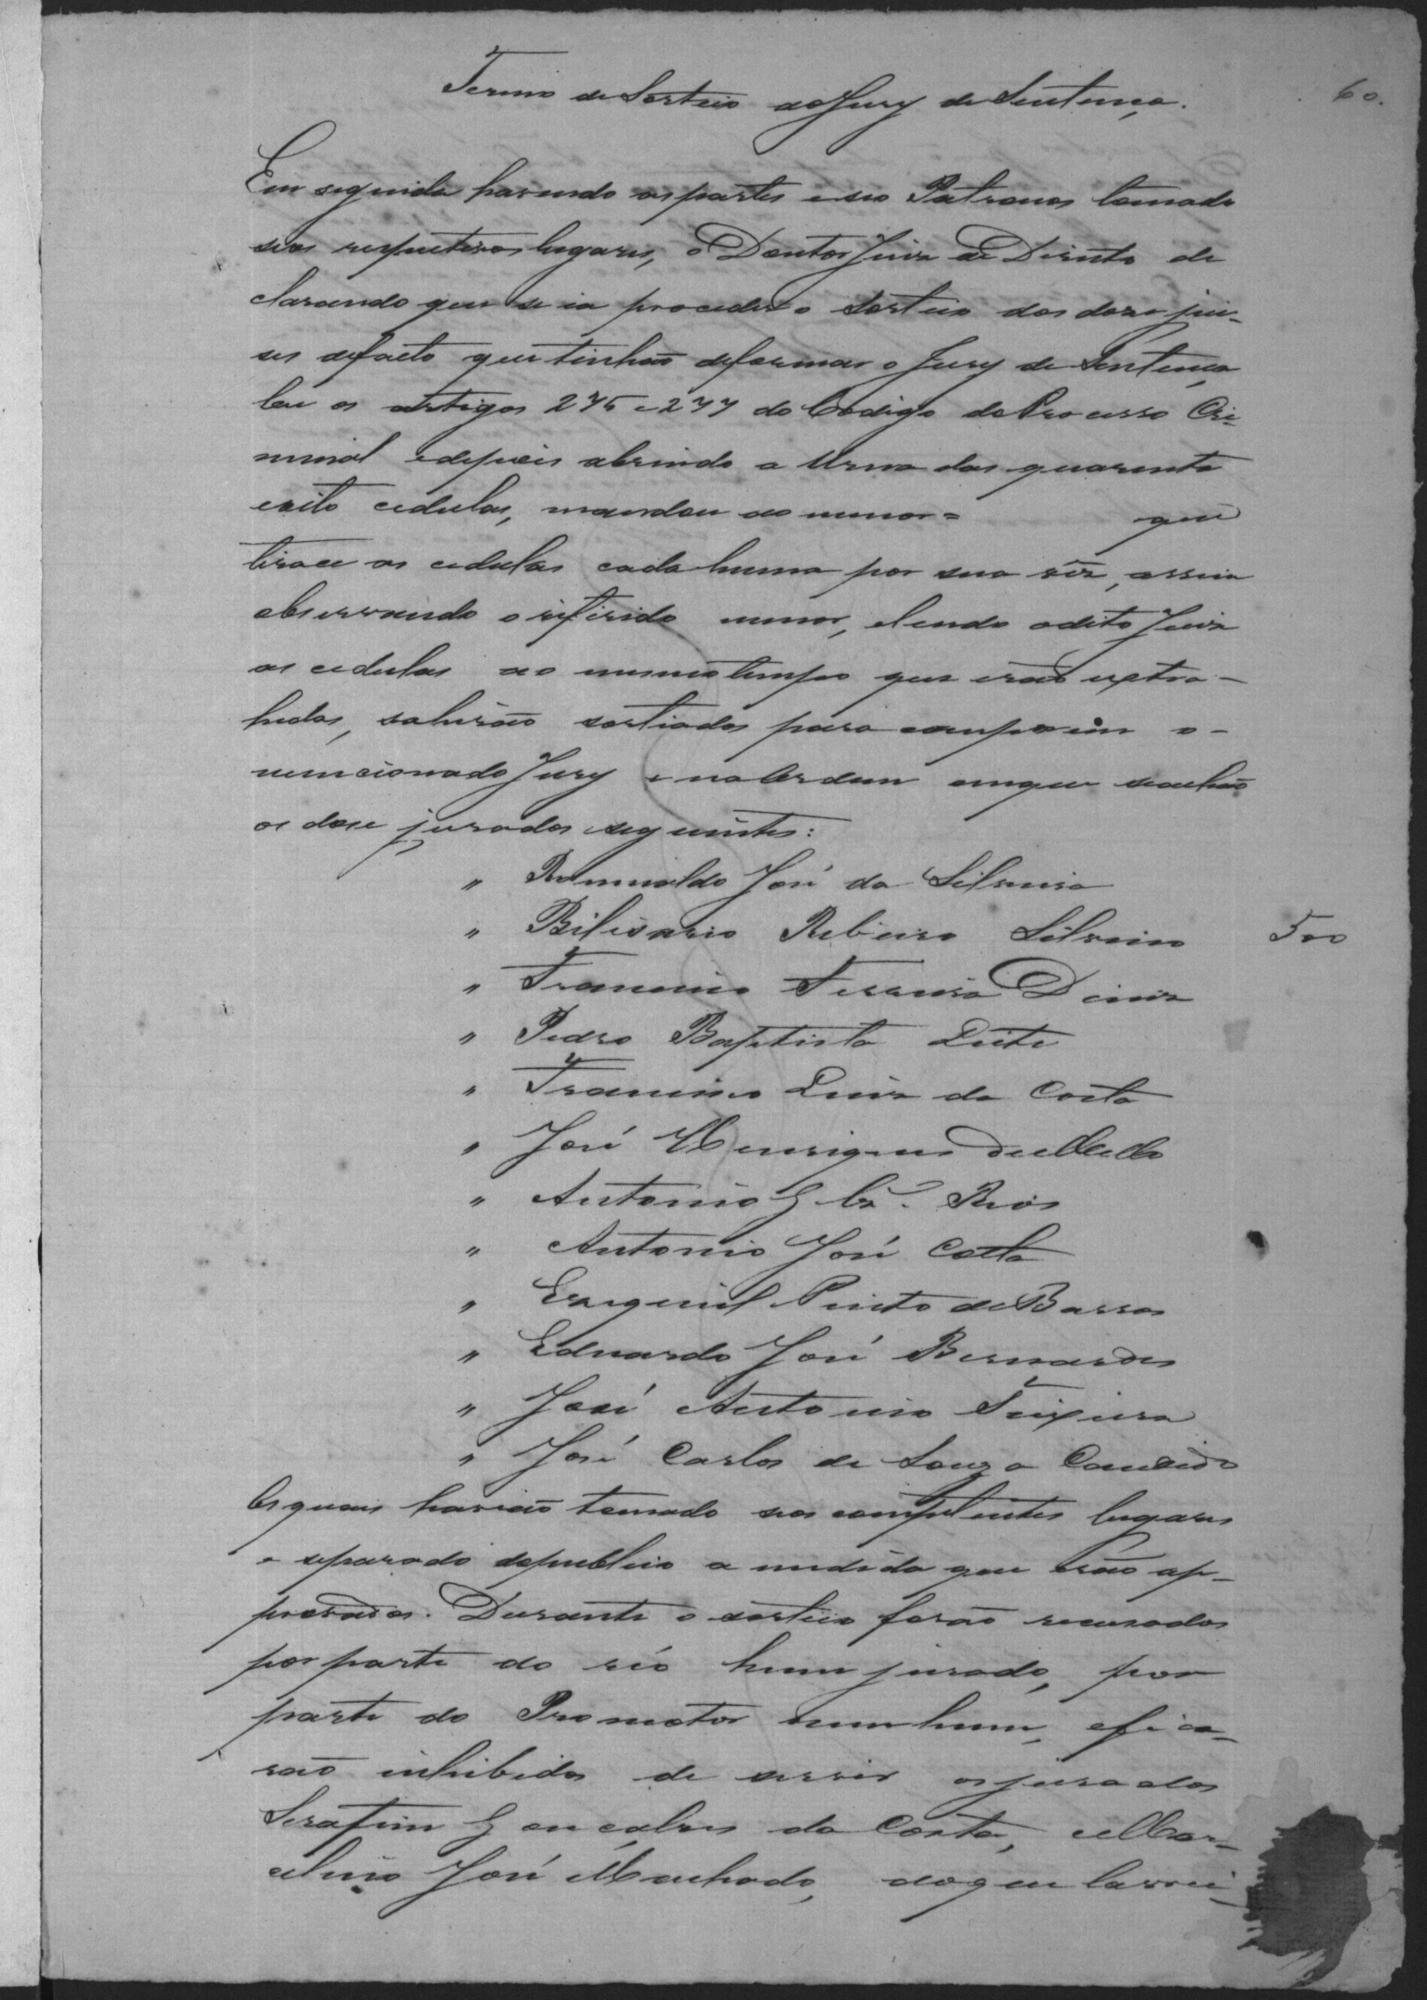 60.
Termo de Sorteio do Jury de Sentença.
Em seguida havendo as partes e seo Patronos tomado
seos respectivos lugares, o Doutor Juiz de Direito de
clarando que se ia proceder o sorteio dos doze jui-
ses de facto que tinhão de formar o Jury de Sentença
leu os artigos 275 e 277 do Codigo do Processo Cri-
minal e depois abrindo a Urna das quarenta
e oito cedulas, mandou ao menor = que
tirace as cedulas cada huma por sua vez, assim
observando o referido menor, e lendo o dito Juiz
as cedulas ao mesmo tempo que erão extra-
hidas, sahirão sortiados para comporem o-
mencionado Jury e na ordem em que se achão
os doze jurados seguintes:
" Romualdo José da Silveira
" Bilisario Ribeiro Silveira 500
" Francisco Ferreira Diniz
" Pedro Baptista Leite
" Francisco Luiz da Costa
" José Henriques de Mello
" Antonio Rios
" Antonio José Cotta
" Ezequiel Pinto de Barros
" Eduardo José Bernardes
" José Antonio Teixeira
" José Carlos de Souza Candido
Os quais havião tomado seos competentes lugares
e separado do publico a medida que erão ap-
provados. Durante o sorteio forão recusados
por parte do réo hum jurado, por
parte do Promotor nenhum, e fica-
rão inhibidos de servir os jurados
Serafim Gonçalves da Costa, e Mar-
celino José Machado, do que lavrei